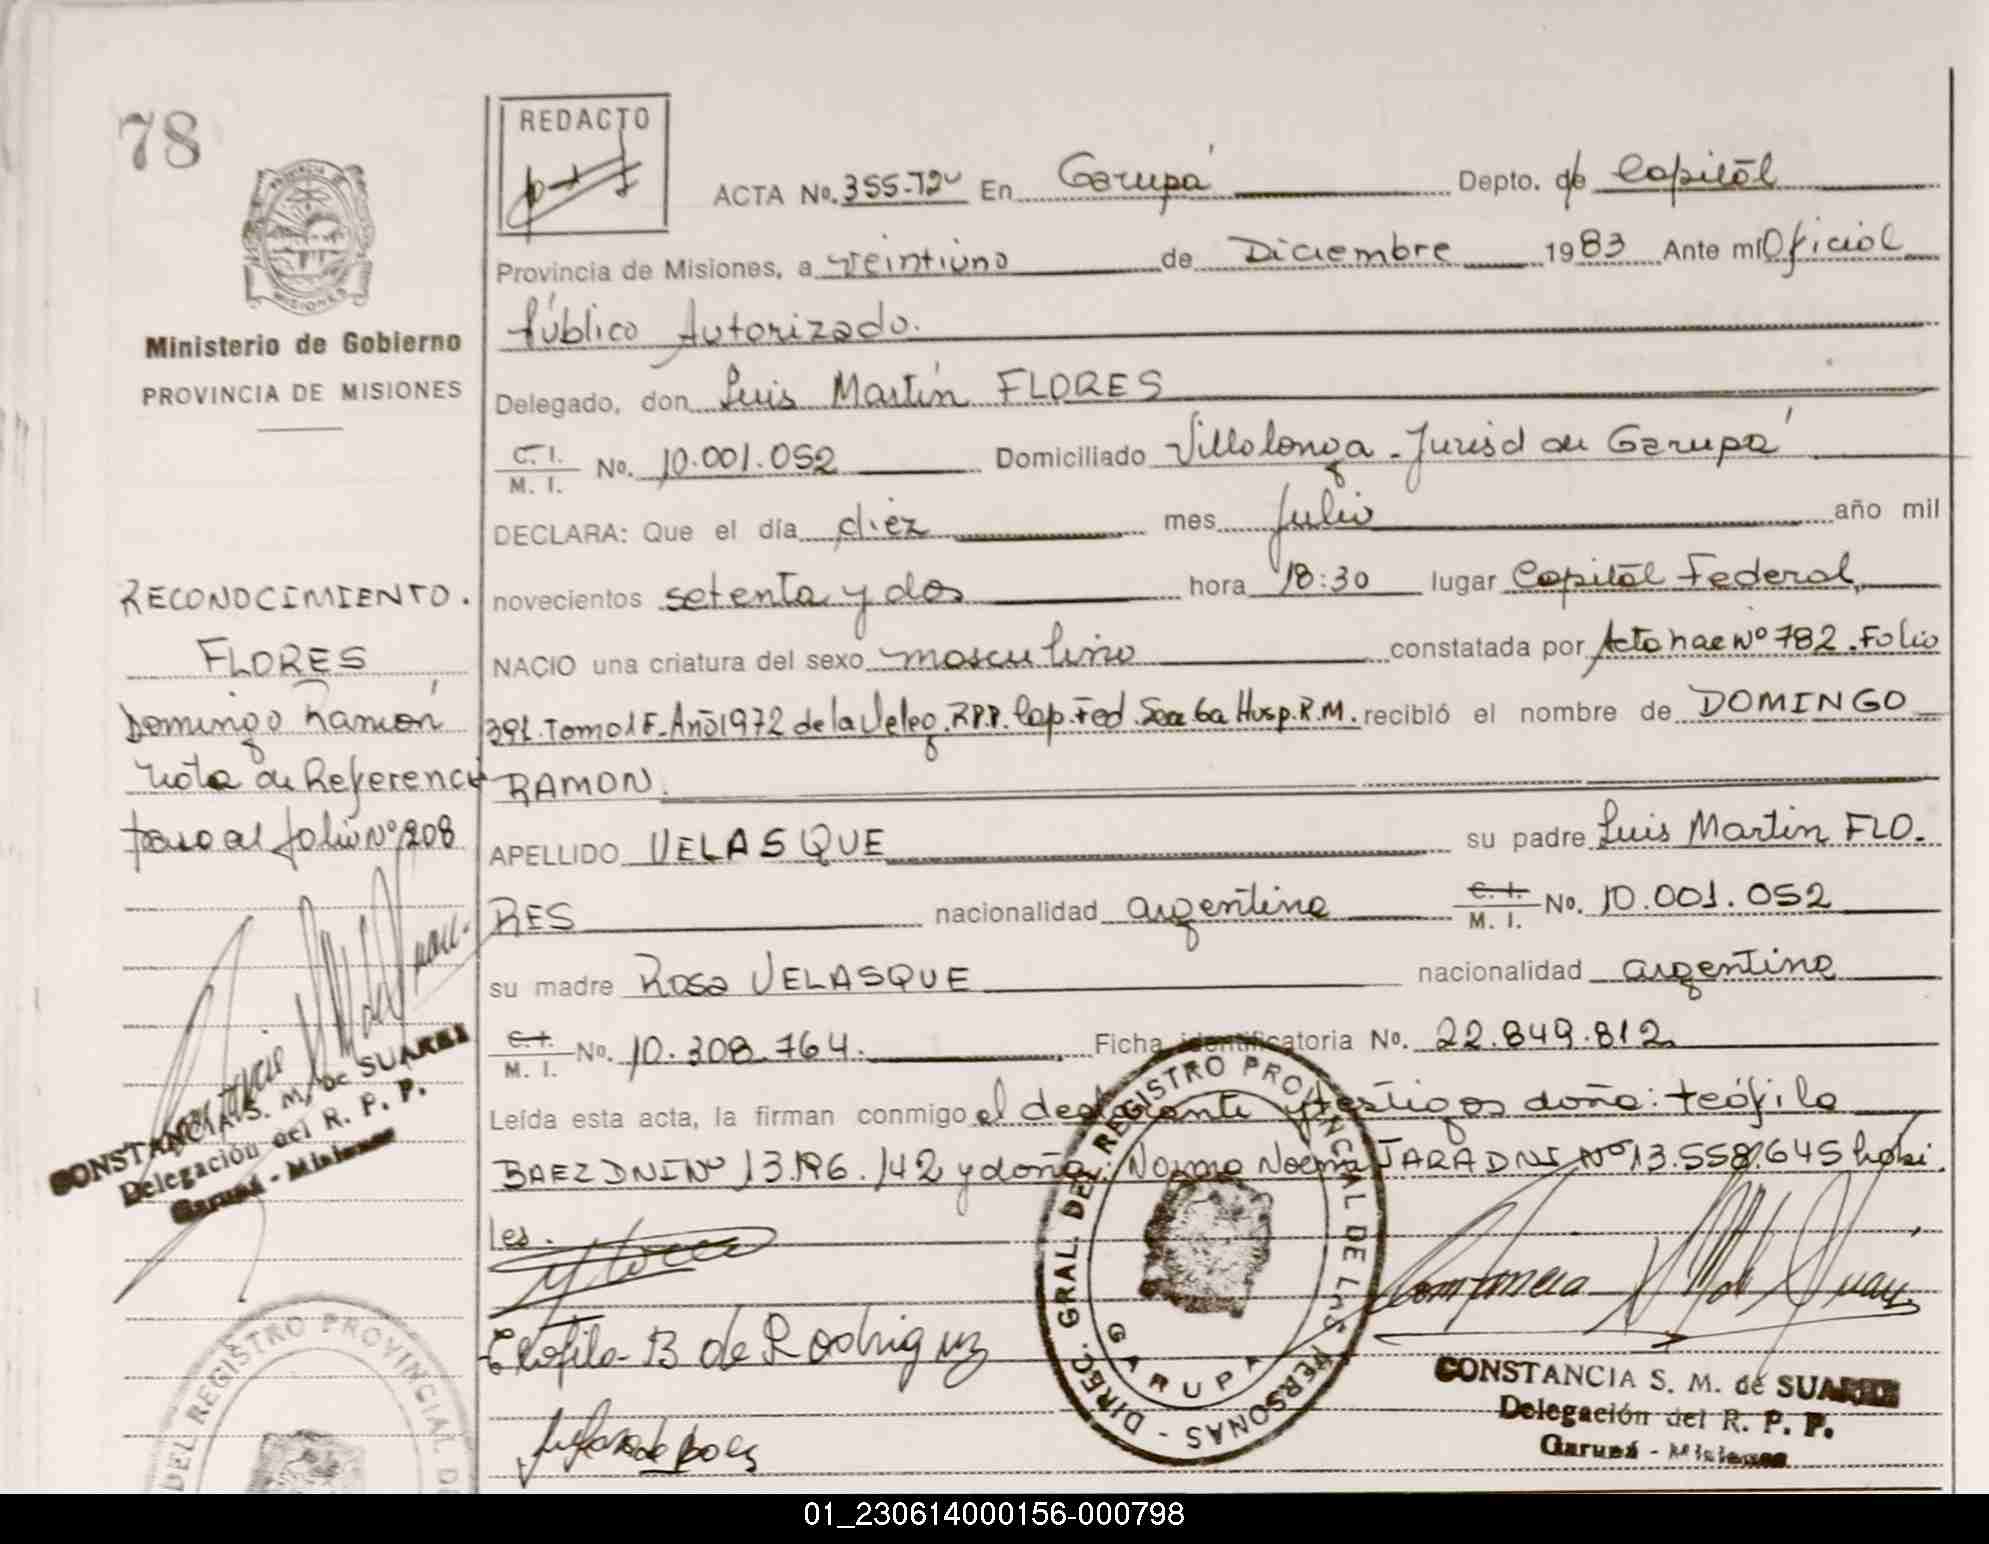 78
REDACTO
PROVINCIA DE
MISIONES
Ministerio de Gobierno
PROVINCIA DE MISIONES
RECONOCIMIENTO.
FLORES
Domingo Ramón
Nota de Referencia
paso al folio Nº 208
CONSTANCIA S. M. de SUAREZ
Delegación del R. P. P.
Garupá - Misiones
DEL REGISTRO PROVINCIAL D
ACTA No. 355-Tº En Garupá Depto. de Capital
Provincia de Misiones, a veintiuno de Diciembre 1983 Ante mí Oficial
Público Autorizado.
Delegado, don Luis Martín FLORES
C. I. / M. I. No. 10.001.052 Domiciliado Villalonga - Jurisd de Garupá
DECLARA: Que el día diez mes Julio año mil
novecientos setenta y dos hora 18:30 lugar Capital Federal,
NACIO una criatura del sexo masculino constatada por Acta nac Nº 782. Folio
391. Tomo 1F. Año 1972 de la Deleg. R.P.P. Cap. Fed. 6a Hosp. R.M. recibió el nombre de DOMINGO
RAMON.
APELLIDO VELASQUE su padre Luis Martin FLO.
RES nacionalidad argentina C. I. / M. I. No. 10.001.052
su madre Rosa VELASQUE nacionalidad argentina
C. I. / M. I. No. 10.308.764. Ficha identificatoria No. 22.849.812
Leída esta acta, la firman conmigo el declarante y testigos doña: teófila
BAEZ DNI Nº 13.196.142 y doña: Norma Noemi JARA DNI Nº 13.558.645 hábi.
les.
Teofila B de Rodriguez
DIREC. GRAL. DEL REGISTRO PROVINCIAL DE LAS PERSONAS -
GARUPA
CONSTANCIA S. M. de SUAREZ
Delegación del R. P. P.
Garupá - Misiones
01_230614000156-000798